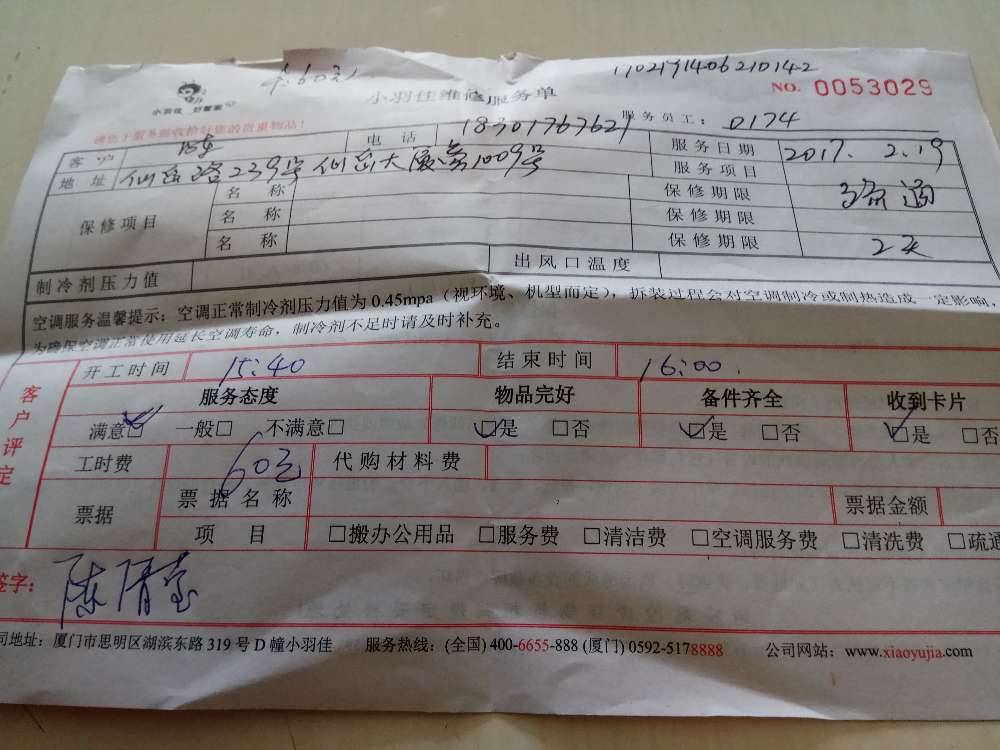 1702191406210142
卡:60元
NO. 0053029
小羽佳 好管家
小羽佳维修服务单
请您于服务前收拾好您的贵重物品!
服务员工: 0174
客户 电话 18301767621 服务日期 2017. 2.19
地址 仙岳路239号仙岳大厦1009号 服务项目
保修项目 名称 保修期限
名称 保修期限
名称 保修期限 2天
制冷剂压力值 出风口温度
空调服务温馨提示:空调正常制冷剂压力值为0.45mpa(视环境、机型而定),拆装过程会对空调制冷或制热造成一定影响,
为确保空调正常使用延长空调寿命,制冷剂不足时请及时补充。
客户评定
开工时间 15:40 结束时间 16:00
服务态度 物品完好 备件齐全 收到卡片
满意□ 一般□ 不满意□ □是 □否 □是 □否 □是 □否
工时费 60元 代购材料费
票据 票据名称 票据金额
项目 □搬办公用品 □服务费 □清洁费 □空调服务费 □清洗费 □疏通
签字:
司地址:厦门市思明区湖滨东路319号D幢小羽佳 服务热线:(全国)400-6655-888 (厦门)0592-5178888 公司网站:www.xiaoyujia.com